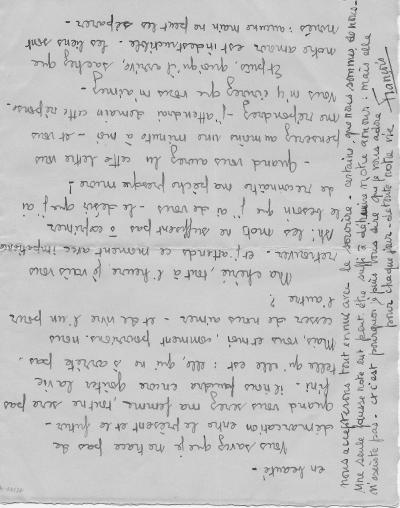 en beauté -
Vous savez que je ne trace pas de
démarcation entre le présent et le futur -
quand vous serez ma femme, tout ne sera pas
fini - il nous faudra encore goûter la vie
telle qu'elle est : elle, qui ne s'arrête pas.
Mais, vous et moi, comment pourrions-nous
cesser de nous aimer - et de vivre l'un pour
l'autre ?
Ma chérie, tout à l'heure je vais vous
retrouver - et j'attends ce moment avec impatience
Ah! les mots ne suffisent pas à exprimer
le besoin que j'ai de vous - le désir que j'ai
de reconnaître ma proche presque mienne !
- Quand vous aurez lu cette lettre vous
penserez au moins une minute à moi - et vous
me répondrez - j'attendrai demain cette réponse.
Vous m'y écrirez que vous m'aimez -
Et puis, quoiqu'il arrive, sachez que
notre amour est indestructible. les liens sont
mariés : aucune main ne peut les séparer -
nous accepterons tout ennui avec le sourire - certains que nous sommes de nous -
Une seule fausse note eut peut être suffi à détruire notre amour : mais elle
n'existe pas - et c'est pourquoi je puis vous dire que je vous adore
pour chaque jour - de toute notre vie
François